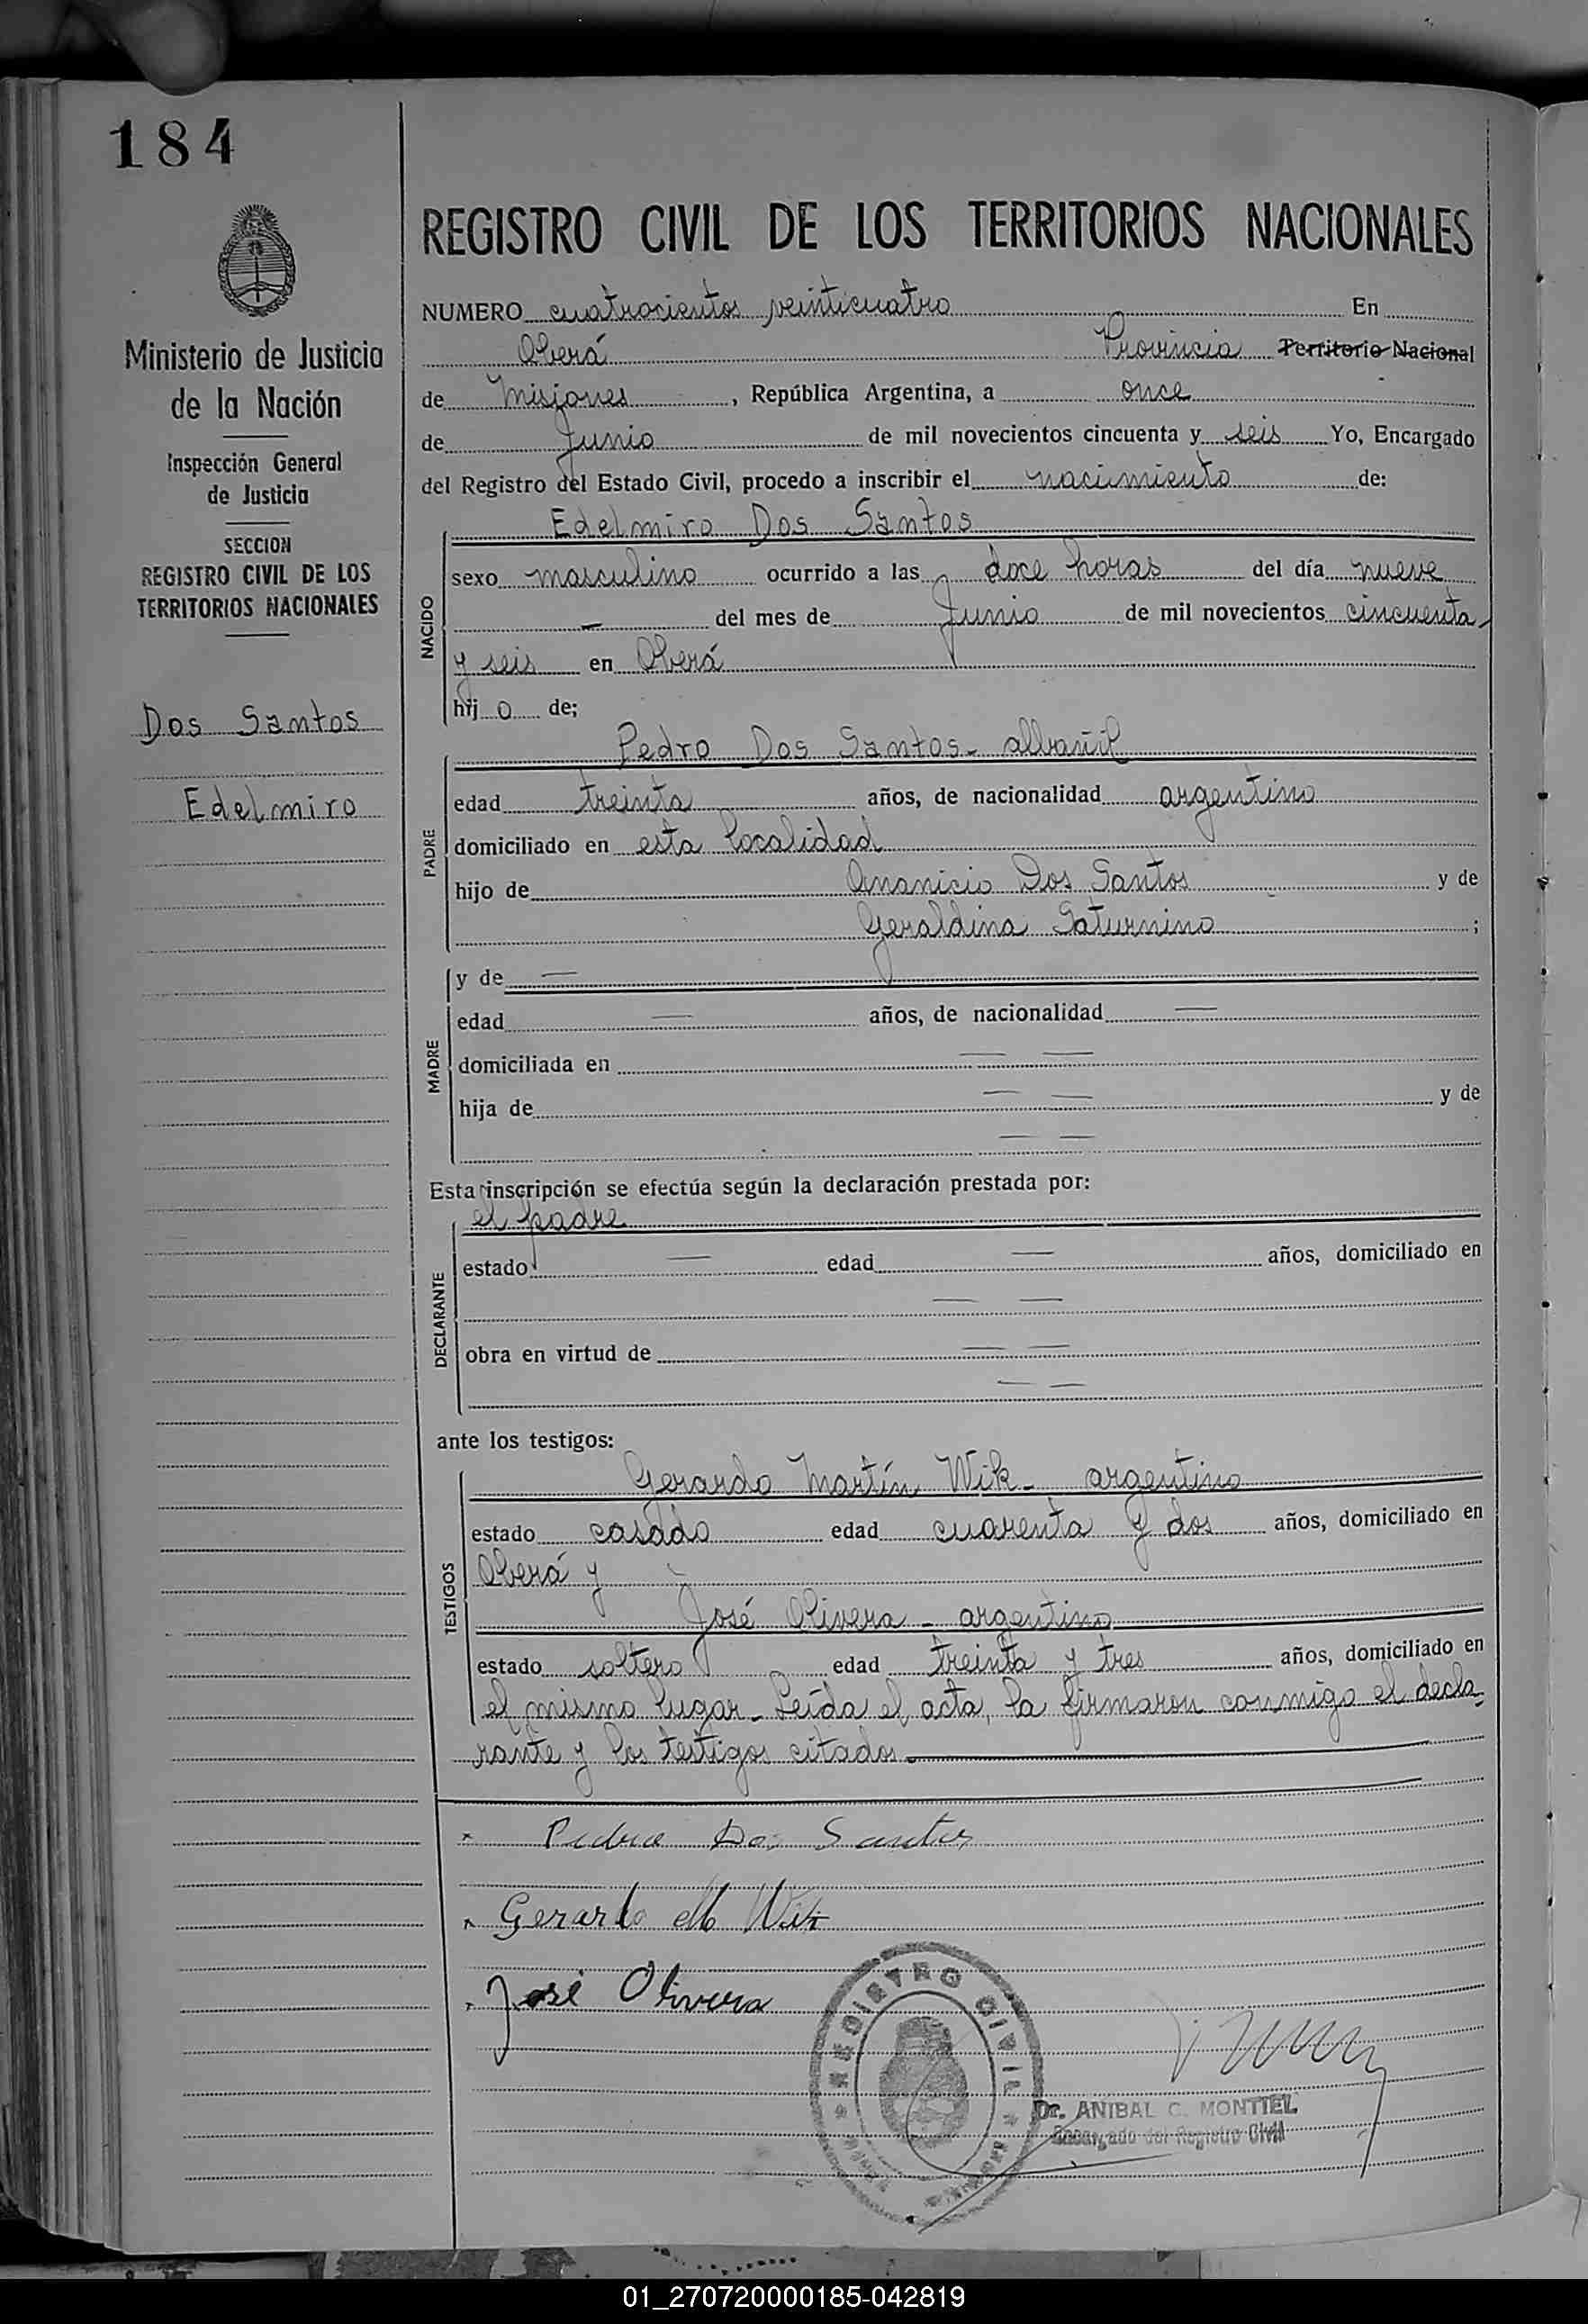 184
Ministerio de Justicia
de la Nación
Inspección General
de Justicia
SECCION
REGISTRO CIVIL DE LOS
TERRITORIOS NACIONALES
Dos Santos
Edelmiro
REGISTRO CIVIL DE LOS TERRITORIOS NACIONALES
NUMERO cuatrocientos veinticuatro En
Oberá Provincia Territorio Nacional
de Misiones, República Argentina, a once
de Junio de mil novecientos cincuenta y seis Yo, Encargado
del Registro del Estado Civil, procedo a inscribir el nacimiento de:
Edelmiro Dos Santos
NACIDO
sexo masculino ocurrido a las doce horas del día nueve
— del mes de Junio de mil novecientos cincuenta
y seis en Oberá
hijo de;
Pedro Dos Santos - albañil
PADRE
edad treinta años, de nacionalidad argentino
domiciliado en esta localidad
hijo de Amanicio Dos Santos y de
Geraldina Saturnino ;
MADRE
y de —
edad — años, de nacionalidad —
domiciliada en — —
hija de — — y de
— —
Esta inscripción se efectúa según la declaración prestada por:
el padre
DECLARANTE
estado — edad — años, domiciliado en
— —
obra en virtud de — —
— —
ante los testigos:
TESTIGOS
Gerardo Martín Wik - argentino
estado casado edad cuarenta y dos años, domiciliado en
Oberá y
José Olivera - argentino
estado soltero edad treinta y tres años, domiciliado en
el mismo lugar - Leída el acta, la firmaron conmigo el decla-
rante y los testigos citados.
Pedro Dos Santos
Gerardo M Wik
José Olivera
REGISTRO CIVIL
Dr. ANIBAL C. MONTIEL
Encargado del Registro Civil
01_270720000185-042819